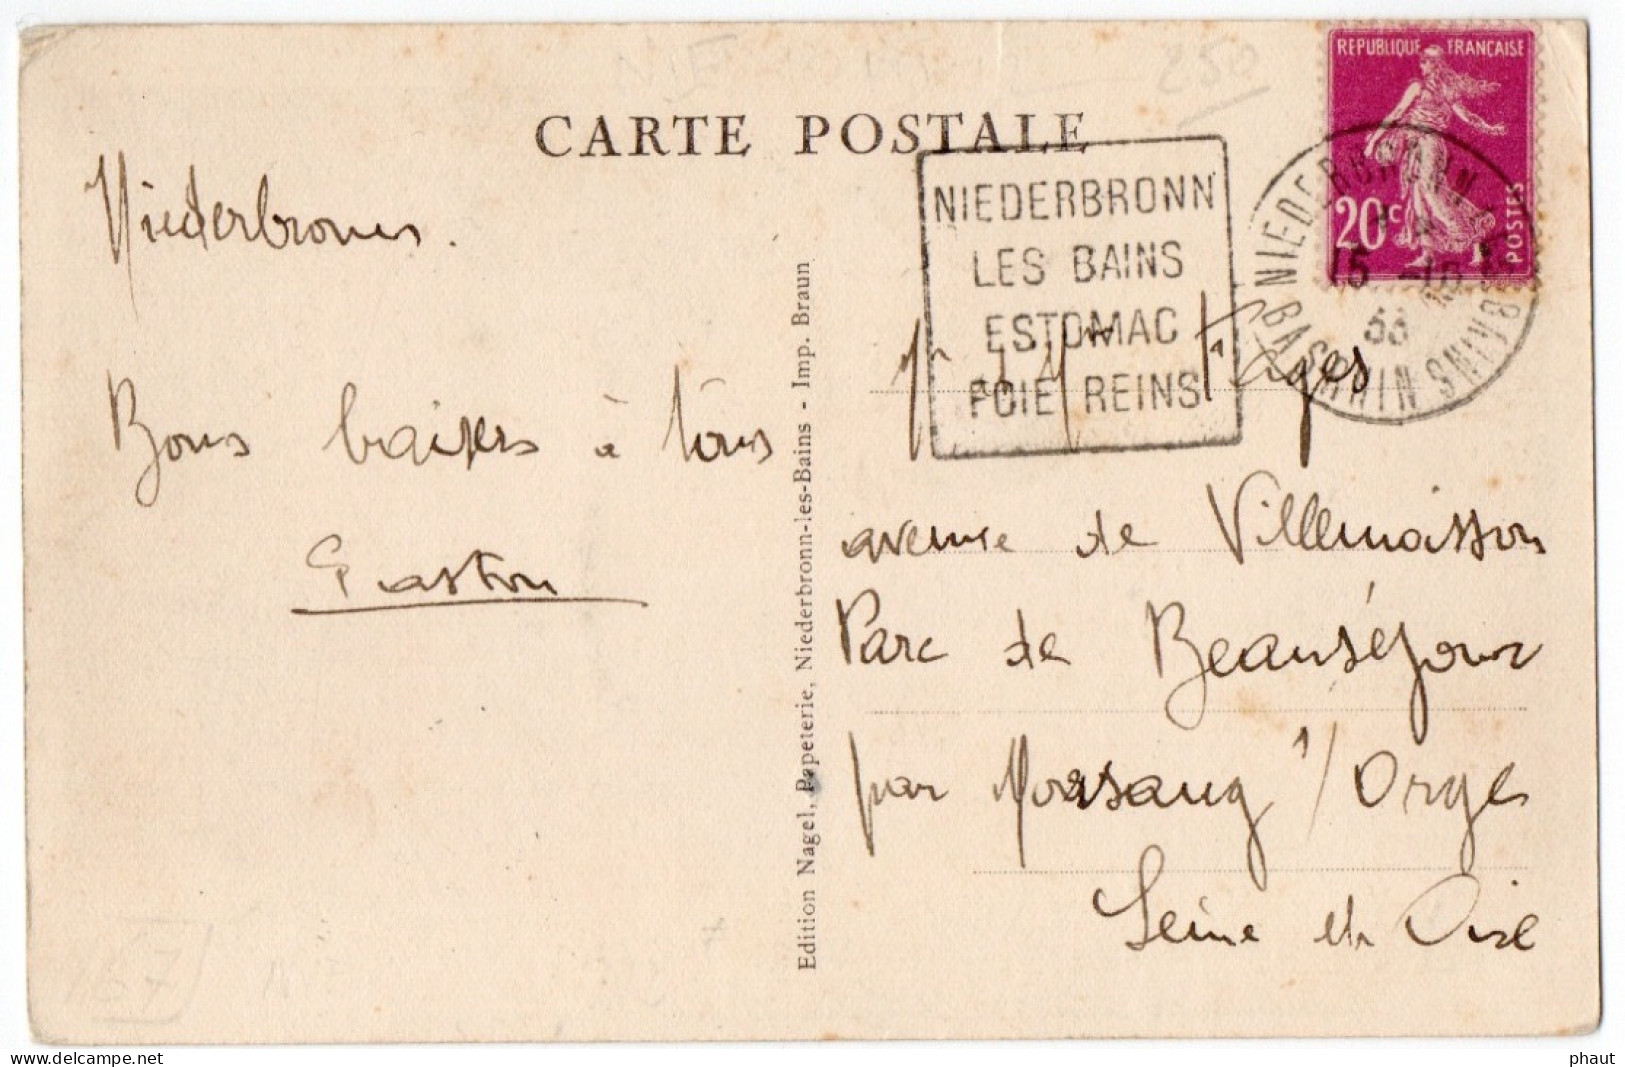 CARTE POSTALE
REPUBLIQUE FRANÇAISE
20c
POSTES
NIEDERBRONN
LES BAINS
ESTOMAC
FOIE REINS
NIEDERBRONN LES BAINS
BAS RHIN
15 -10
Niederbronn.
Bons baisers à tous
Gaston
Edition Nagel, Papeterie, Niederbronn-les-Bains - Imp. Braun
Mr et Mme Pages
avenue de Villemoisson
Parc de Beauséjour
par Morsang s/Orge
Seine et Oise
250
167
phaut